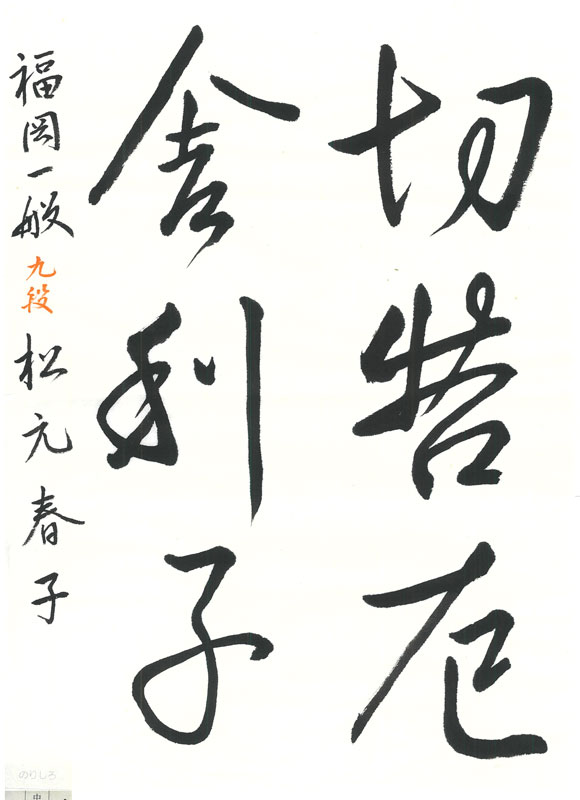 切苦厄
舎利子
福岡一般 九段 松元春子
のりしろ
中